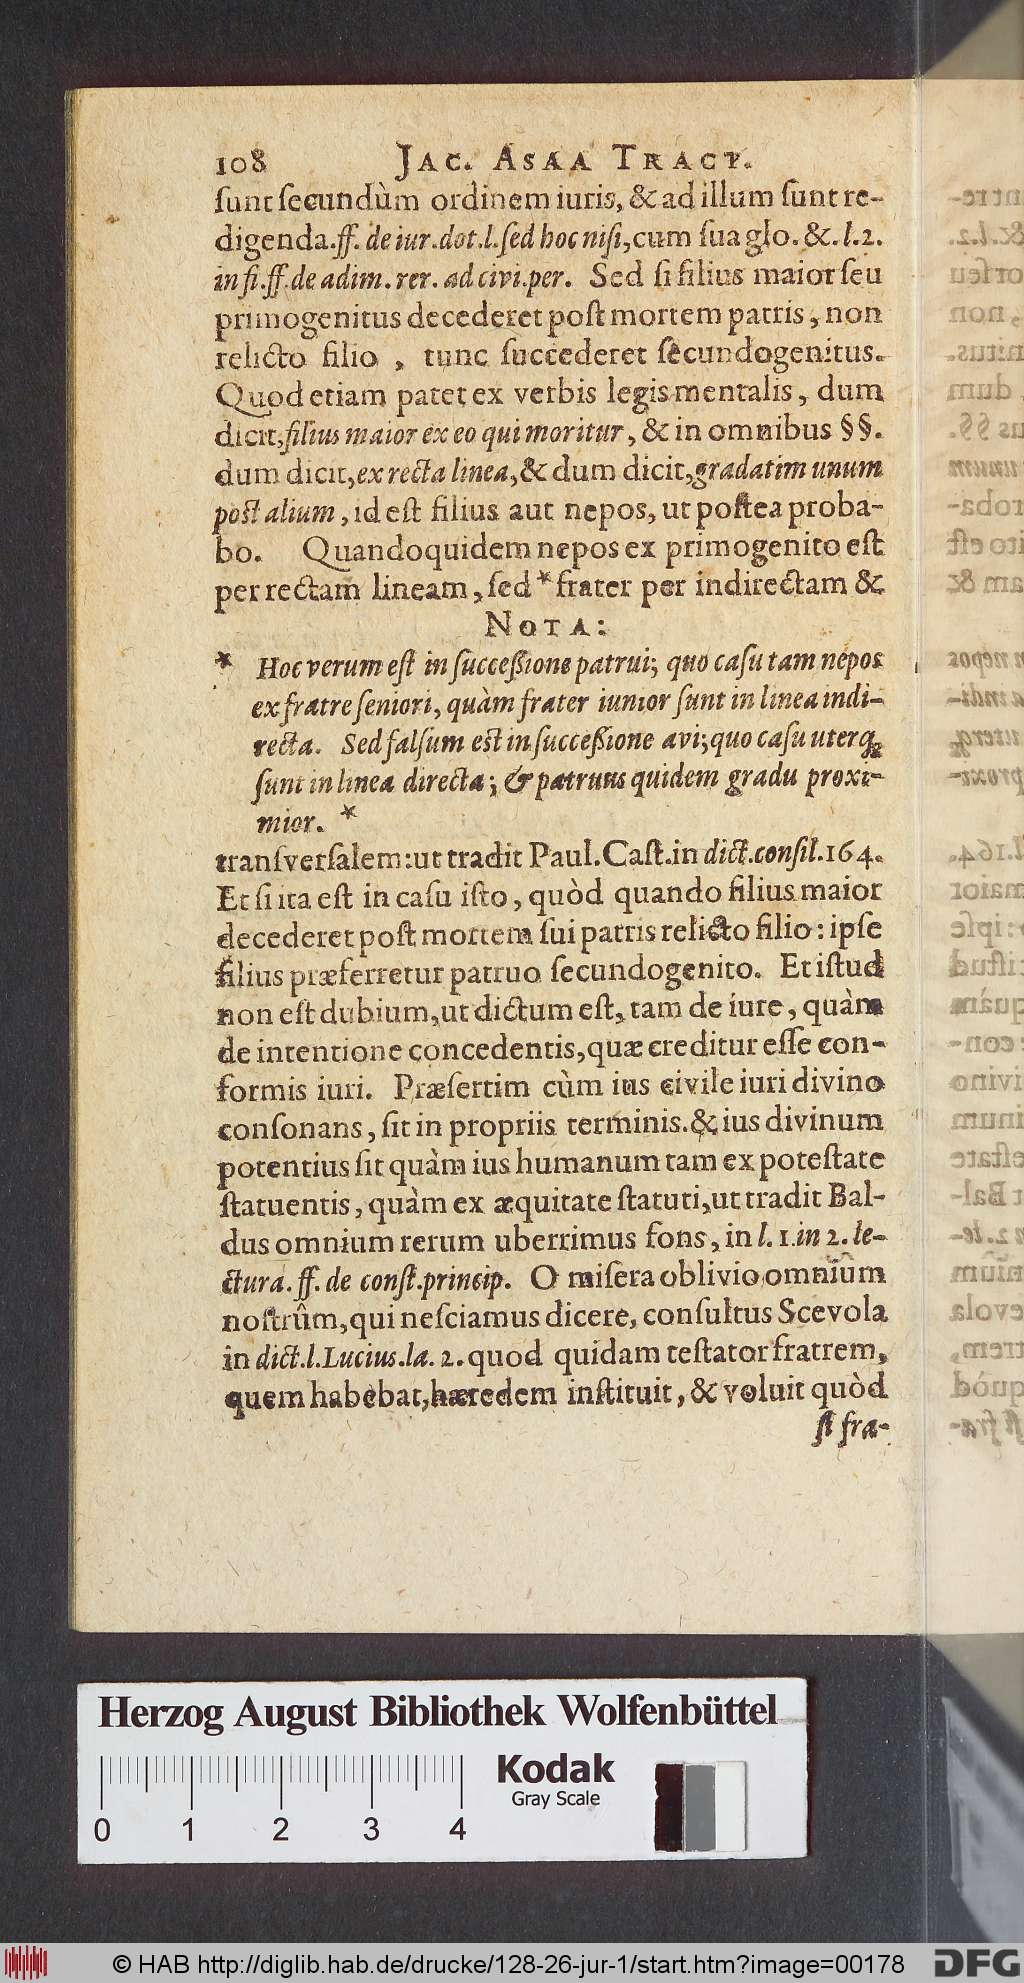 108 JAC. ASAA TRACT.
sunt secundùm ordinem iuris, & ad illum sunt re-
digenda. ff. de iur. dot. l. sed hoc nisi, cum sua glo. &. l. 2.
in fi. ff. de adim. rer. ad civi. per. Sed si filius maior seu
primogenitus decederet post mortem patris, non
relicto filio, tunc succederet secundogenitus.
Quod etiam patet ex verbis legis mentalis, dum
dicit, filius maior ex eo qui moritur, & in omnibus §§.
dum dicit, ex recta linea, & dum dicit, gradatim unum
post alium, id est filius aut nepos, ut postea proba-
bo. Quandoquidem nepos ex primogenito est
per rectam lineam, sed * frater per indirectam &
NOTA:
* Hoc verum est in successione patrui; quo casu tam nepos
ex fratre seniori, quàm frater iunior sunt in linea indi-
recta. Sed falsum est in successione avi; quo casu uterq;
sunt in linea directa; & patruus quidem gradu proxi-
mior. *
transversalem: ut tradit Paul. Cast. in dict. consil. 164.
Et si ita est in casu isto, quòd quando filius maior
decederet post mortem sui patris relicto filio: ipse
filius præferretur patruo secundogenito. Et istud
non est dubium, ut dictum est, tam de iure, quàm
de intentione concedentis, quæ creditur esse con-
formis iuri. Præsertim cùm ius civile iuri divino
consonans, sit in propriis terminis. & ius divinum
potentius sit quàm ius humanum tam ex potestate
statuentis, quàm ex æquitate statuti, ut tradit Bal-
dus omnium rerum uberrimus fons, in l. 1. in 2. le-
ctura. ff. de const. princip. O misera oblivio omnium
nostrûm, qui nesciamus dicere, consultus Scevola
in dict. l. Lucius. la. 2. quod quidam testator fratrem,
quem habebat, hæredem instituit, & voluit quòd
si fra-
Herzog August Bibliothek Wolfenbüttel
Kodak
Gray Scale
0 1 2 3 4
© HAB http://diglib.hab.de/drucke/128-26-jur-1/start.htm?image=00178
DFG